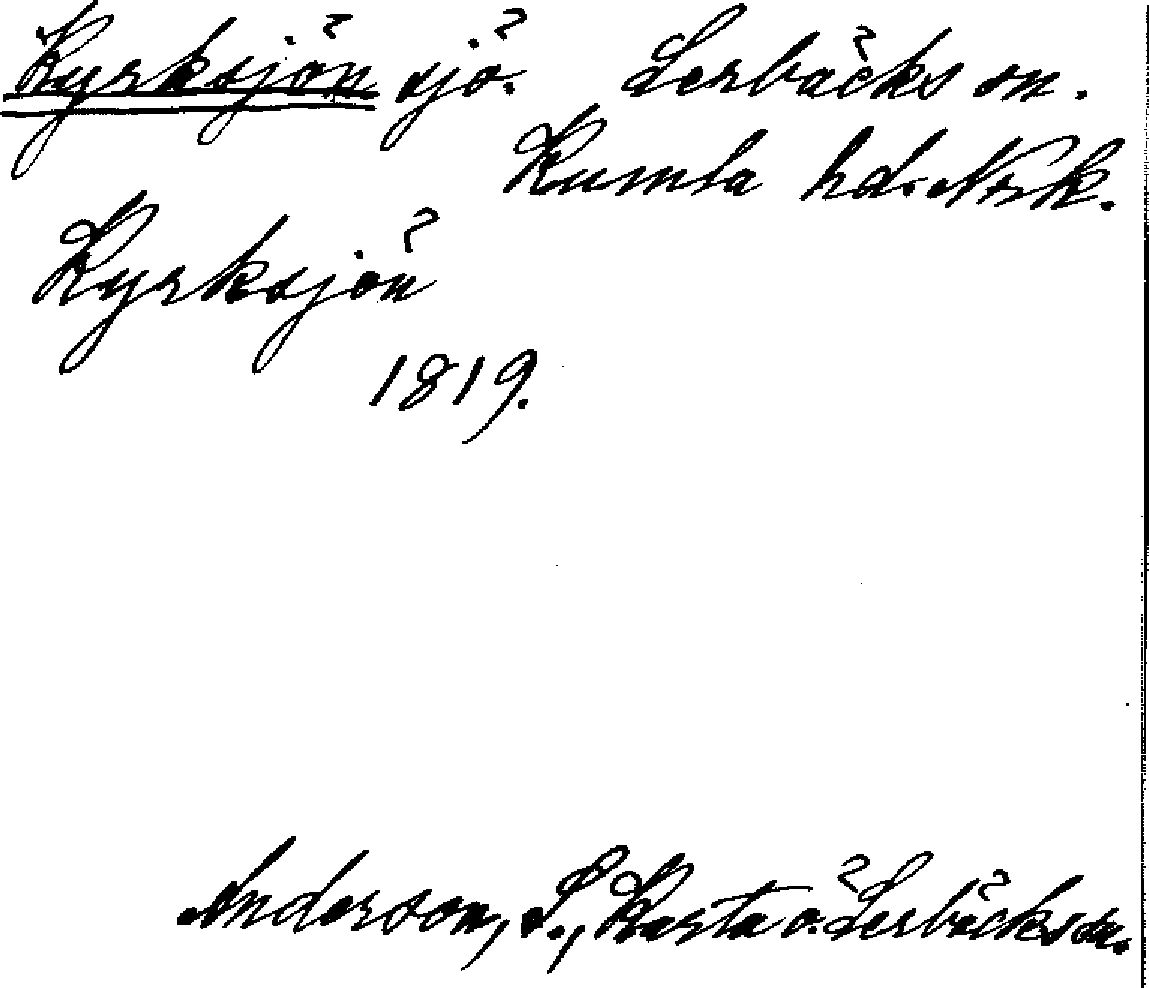 Kyrksjön sjö. Lerbäcks sn.
Kumla hd. Nrk.
Kyrksjön
1819.
Anderson, S., Karta ö. Lerbäcks sn.